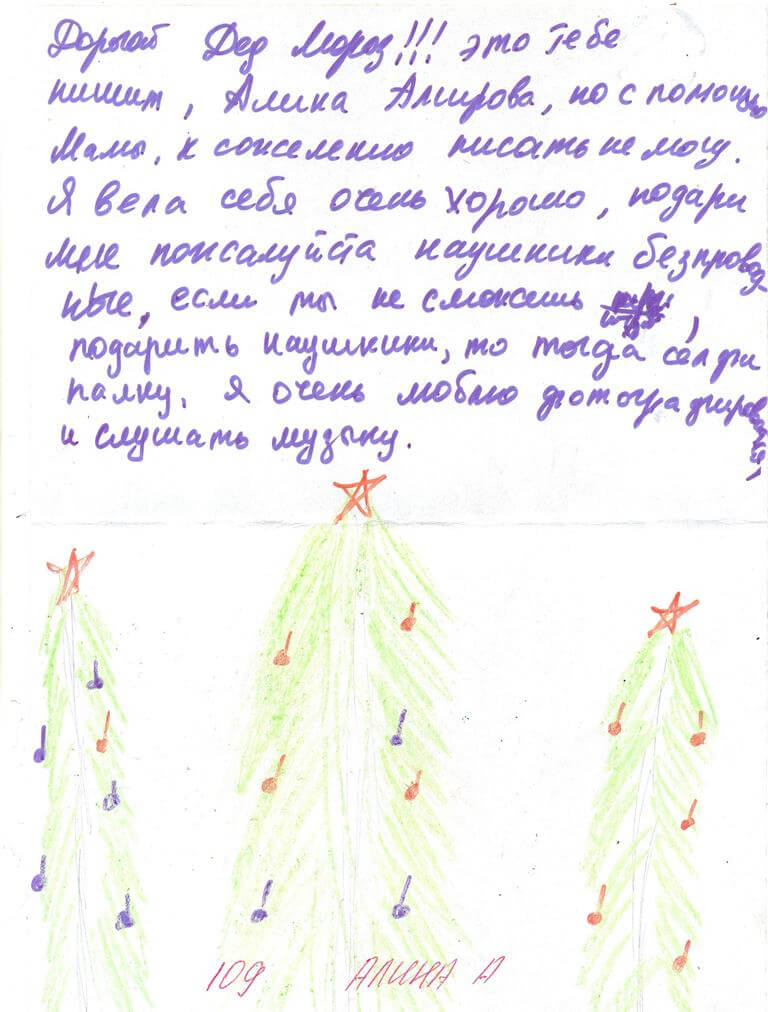 Дорогой Дед Мороз!!! это тебе
пишит, Алина Амирова, но с помощью
Мамы, к сожелению писать не могу.
Я вела себя очень хорошо, подари
мне пожалуйста наушники безпровод
ные, если ты не сможешь ,
подарить наушники, то тогда селфи
палку. Я очень люблю фотографировать,
и слушать музыку.
109 АЛИНА А